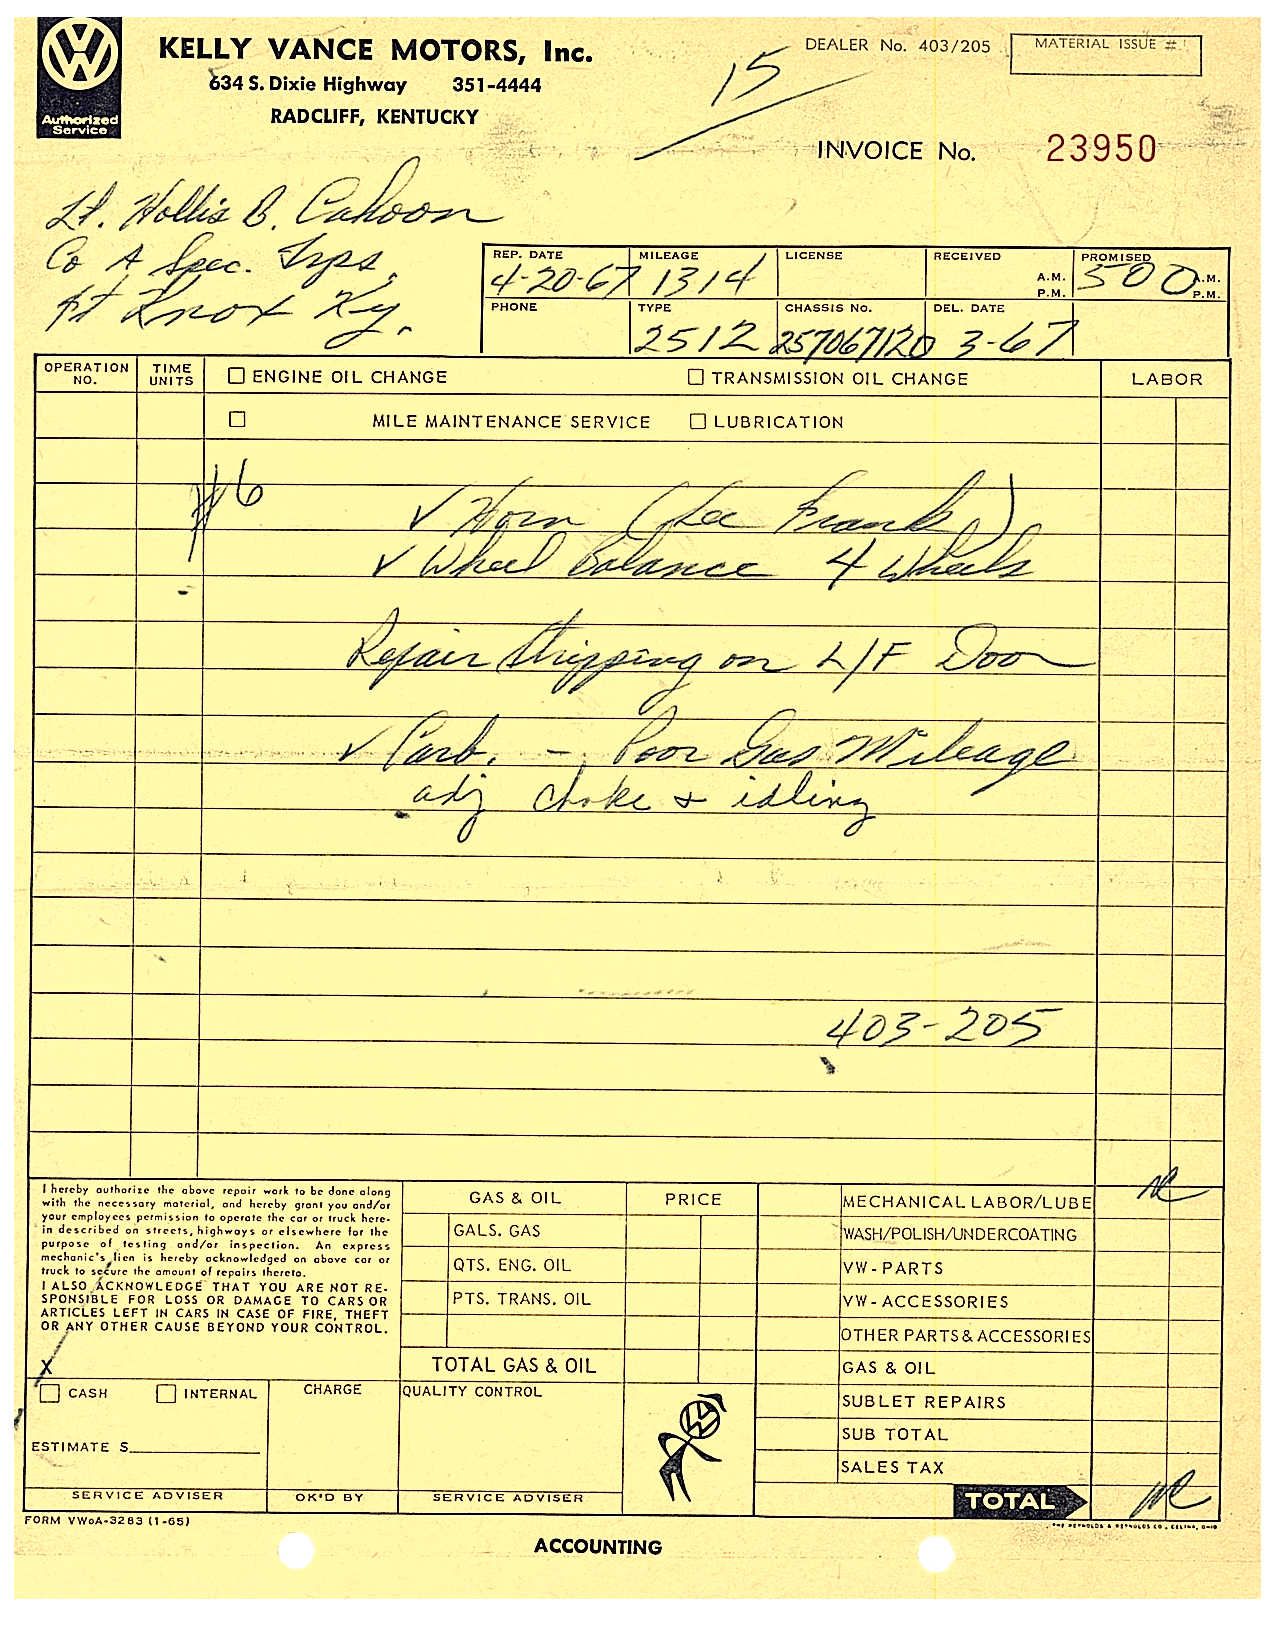 KELLY VANCE MOTORS, Inc.
634 S. Dixie Highway 351-4444
RADCLIFF, KENTUCKY
Authorized
Service
15
DEALER No. 403/205
MATERIAL ISSUE #
INVOICE No. 23950
Lt. Hollis B. Cahoon
Co A Spec. Trps.
Ft Knox Ky.
REP. DATE MILEAGE LICENSE RECEIVED PROMISED
4-20-67 1314 A.M. P.M. 500 A.M. P.M.
PHONE TYPE CHASSIS No. DEL. DATE
2512 257067120 3-67
OPERATION NO. TIME UNITS ENGINE OIL CHANGE TRANSMISSION OIL CHANGE LABOR
MILE MAINTENANCE SERVICE LUBRICATION
#6
✓ Horn (See Frank)
✓ Wheel Balance 4 Wheels
Repair Stripping on L/F Door
✓ Carb. - Poor Gas Mileage
adj choke + idling
403-205
I hereby authorize the above repair work to be done along
with the necessary material, and hereby grant you and/or
your employees permission to operate the car or truck here-
in described on streets, highways or elsewhere for the
purpose of testing and/or inspection. An express
mechanic's lien is hereby acknowledged on above car or
truck to secure the amount of repairs thereto.
I ALSO ACKNOWLEDGE THAT YOU ARE NOT RE-
SPONSIBLE FOR LOSS OR DAMAGE TO CARS OR
ARTICLES LEFT IN CARS IN CASE OF FIRE, THEFT
OR ANY OTHER CAUSE BEYOND YOUR CONTROL.
X
CASH INTERNAL CHARGE
ESTIMATE $
SERVICE ADVISER OK'D BY
GAS & OIL PRICE
GALS. GAS
QTS. ENG. OIL
PTS. TRANS. OIL
TOTAL GAS & OIL
QUALITY CONTROL
SERVICE ADVISER
MECHANICAL LABOR/LUBE NC
WASH/POLISH/UNDERCOATING
VW-PARTS
VW-ACCESSORIES
OTHER PARTS & ACCESSORIES
GAS & OIL
SUBLET REPAIRS
SUB TOTAL
SALES TAX
TOTAL NC
FORM VWoA-3283 (1-65)
THE REYNOLDS & REYNOLDS CO., CELINA, OHIO
ACCOUNTING